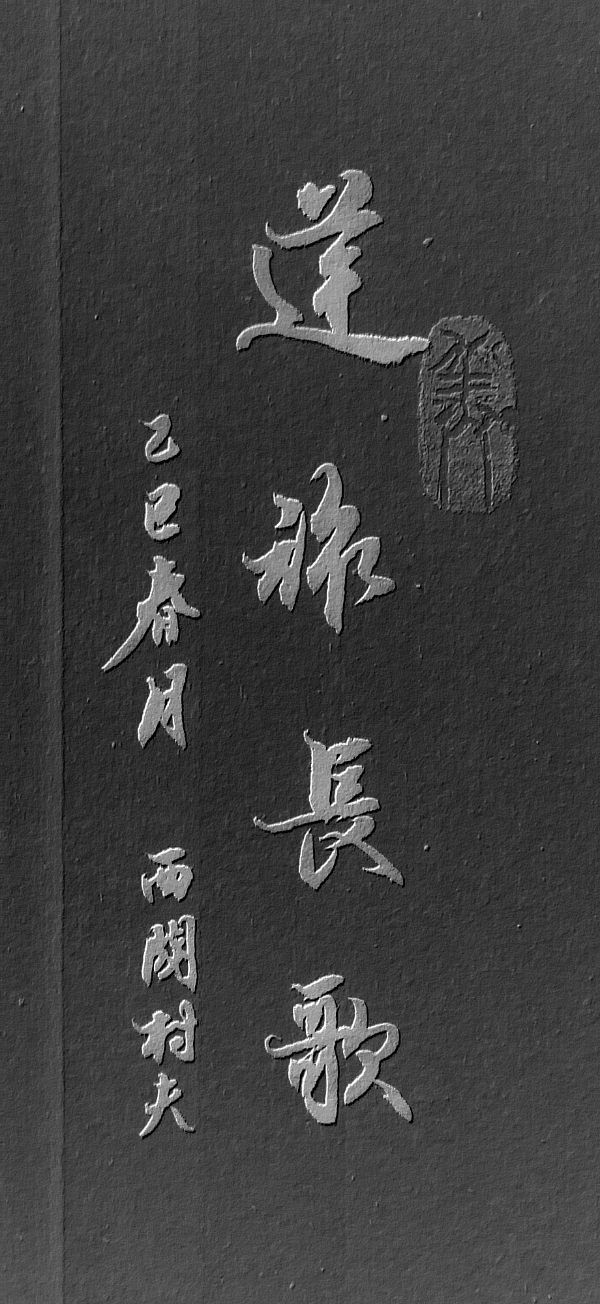 逆旅長歌
乙巳春月 西関村夫